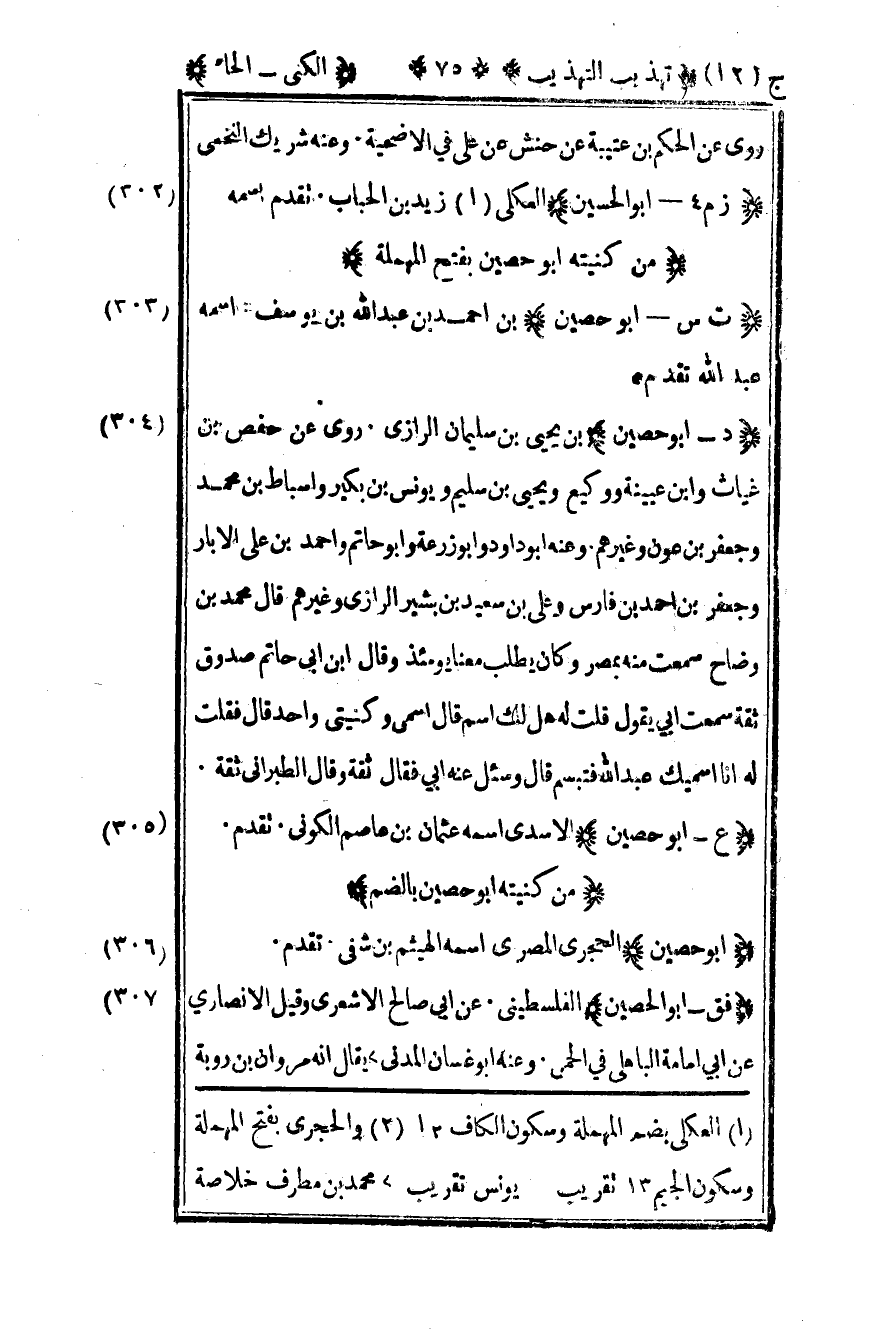 ج (١٢) ﴿ تهذيب التهذيب ﴾ ﴿ ٧٥ ﴾ ﴿ الكنى ــ الحاء ﴾
روى عن الحكم بن عتيبة عن حنش عن على في الاضحية · وعنه شريك النخعى
﴿ ز م ٤ ــ ابو الحسين ﴾ العكلى (١) زيد بن الحباب · تقدم اسمه (٣٠٢)
﴿ من كنيته ابو حصين بفتح المهملة ﴾
﴿ ت س ــ ابو حصين ﴾ بن احمد بن عبدالله بن يوسف · اسمه (٣٠٣)
عبد الله تقدم
﴿ د ــ ابو حصين ﴾ بن يحيى بن سليمان الرازى · روى عن حفص بن (٣٠٤)
غياث وابن عيينة ووكيع ويحيى بن سليم ويونس بن بكير واسباط بن محمد
وجعفر بن عون وغيرهم · وعنه ابو داود وابو زرعة وابو حاتم واحمد بن على الابار
وجعفر بن احمد بن فارس وعلى بن سعيد بن بشير الرازى وغيرهم قال محمد بن
وضاح سمعت منه بمصر وكان يطلب معنا يومئذ وقال ابن ابي حاتم صدوق
ثقة سمعت ابي يقول قلت له هل لك اسم قال اسمى وكنيتى واحد قال فقلت
له انا اسميك عبدالله فتبسم قال وسئل عنه ابي فقال ثقة وقال الطبرانى ثقة ·
﴿ ع ــ ابو حصين ﴾ الاسدى اسمه عثمان بن عاصم الكوفى · تقدم · (٣٠٥)
﴿ من كنيته ابو حصين بالضم ﴾
﴿ ابو حصين ﴾ الحجرى المصرى اسمه الهيثم بن شفى · تقدم · (٣٠٦)
﴿ فق ــ ابو الحصين ﴾ الفلسطينى · عن ابي صالح الاشعرى وقيل الانصاري (٣٠٧
عن ابي امامة الباهلى في الحمى · وعنه ابو غسان المدنى > يقال انه مروان بن روبة
(١) العكلى بضم المهملة وسكون الكاف ١٢ (٢) والحجرى بفتح المهملة
وسكون الجيم ١٣ تقريب يونس تقريب > محمد بن مطرف خلاصة